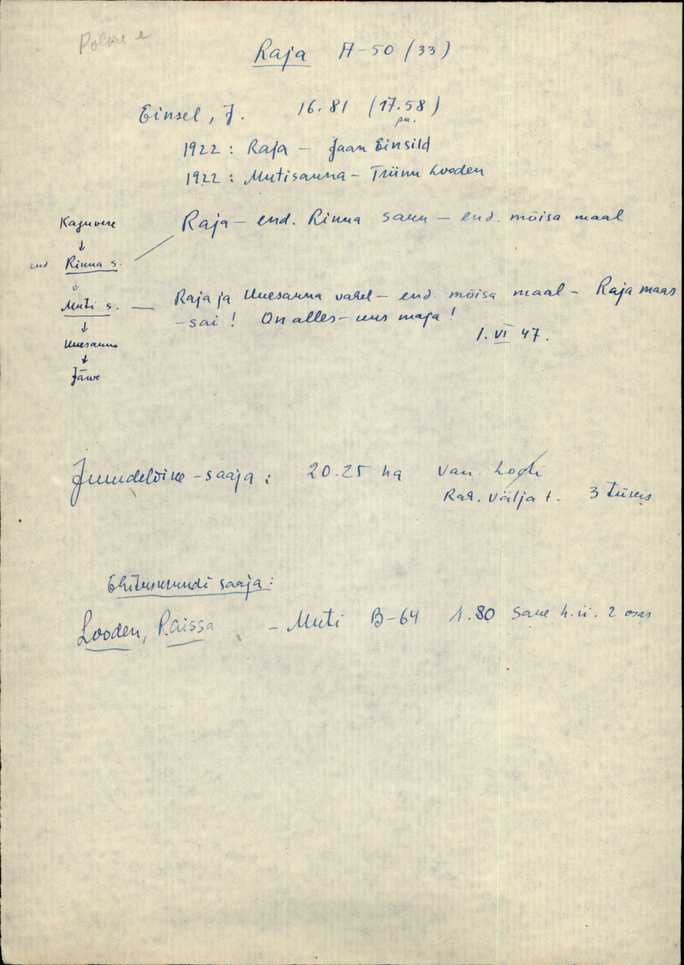 Raja A-50 (33)
Einsel, J. 16.81 (17.58)
1922: Raja - Jaan Einsild
1922: Mutisauna - Triinu Looden
Raja - end. Rinna saun - end. mõisa maal
Kaguvere
↓
end Rinna s.
↓
Muti s. — Raja ja Uuesauna vahel - end. mõisa maal - Raja maas
-sai! On alles - uus maja!
↓
Uuesauna
1. VI 47.
↓
Järve
Juurdelõike-saaja: 20.25 ha van.
Rad. välja t. 3
Ehituskrundi saaja:
Looden, Raissa - Muti B-64 1.80 2 osas